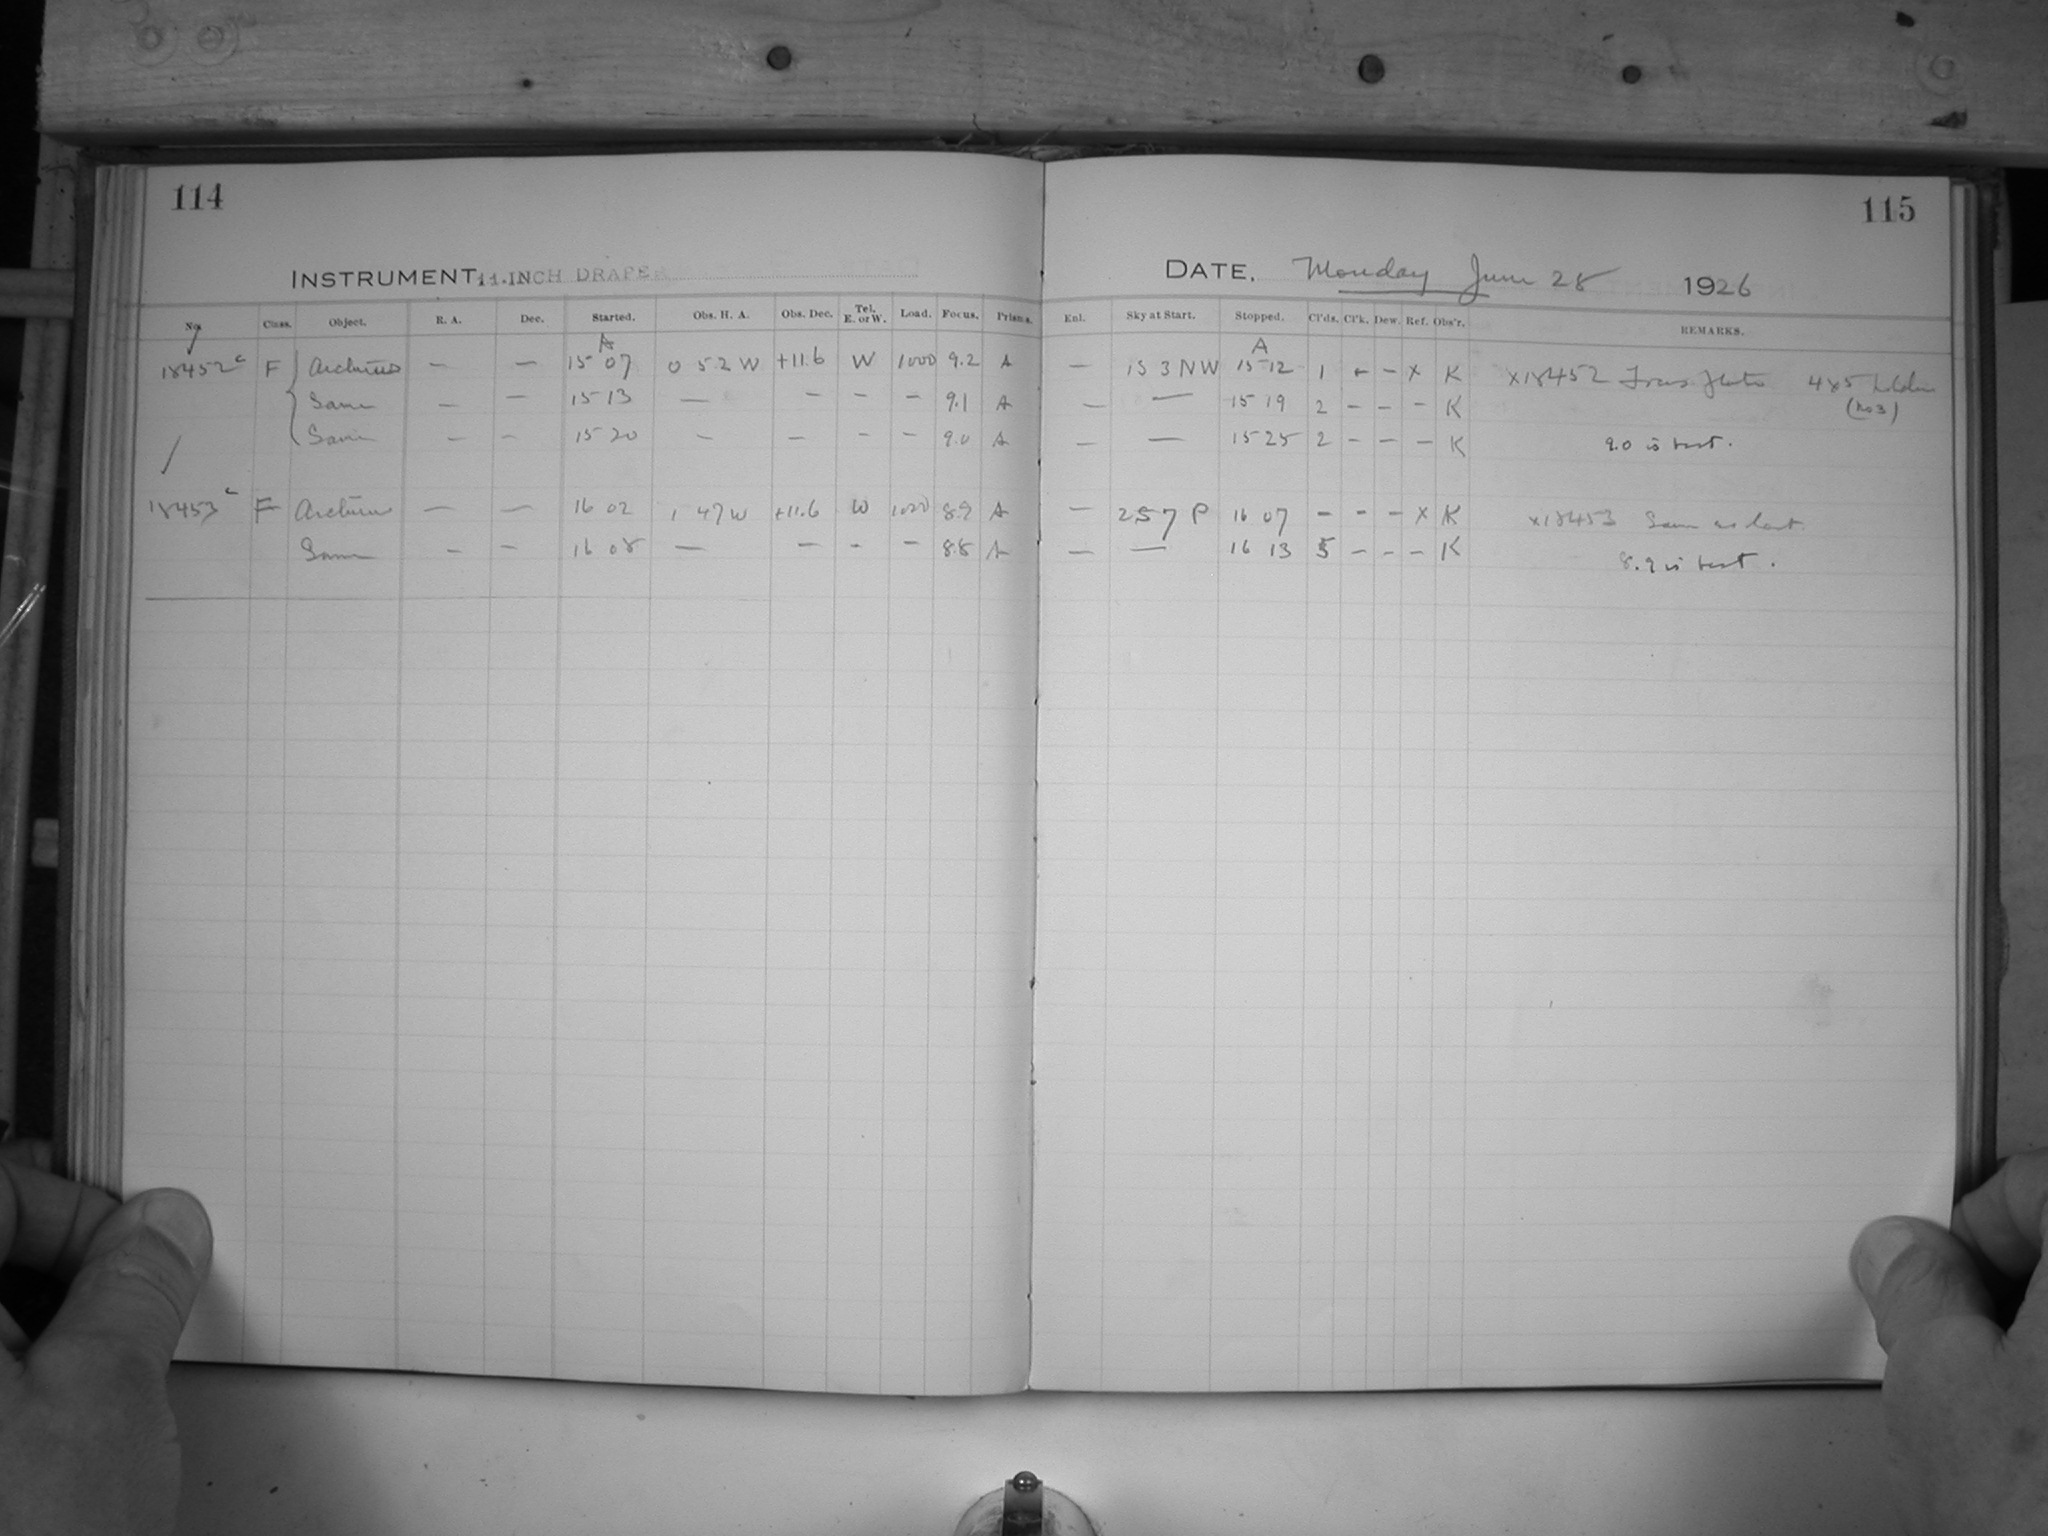 114
115
INSTRUMENT. 11-INCH DRAPER
DATE. Monday June 28 1926
No. Class. Object. R. A. Dec. Started. Obs. H. A. Obs. Dec. Tel. E. or W. Load. Focus. Prisms. Enl. Sky at Start. Stopped. Cl'ds. Cl'k. Dew. Ref. Obs'r. REMARKS.
A A
18452 c F Arcturus — — 15 07 0 52 W +11.6 W 1000 9.2 A — 15 3 NW 15 12 1 - - x K x18452 Focus plate 4x5 holder
Same — — 15 13 — — — — 9.1 A — — 15 19 2 - - - K (No 3)
Same — — 15 20 — — — — 9.0 A — — 15 25 2 - - - K 9.0 is best.
18453 c F Arcturus — — 16 02 1 47 W +11.6 W 1000 8.9 A — 257 P 16 07 - - - x K x18453 Same as last.
Same — — 16 08 — — — — 8.8 A — — 16 13 5 - - - K 8.9 is best.